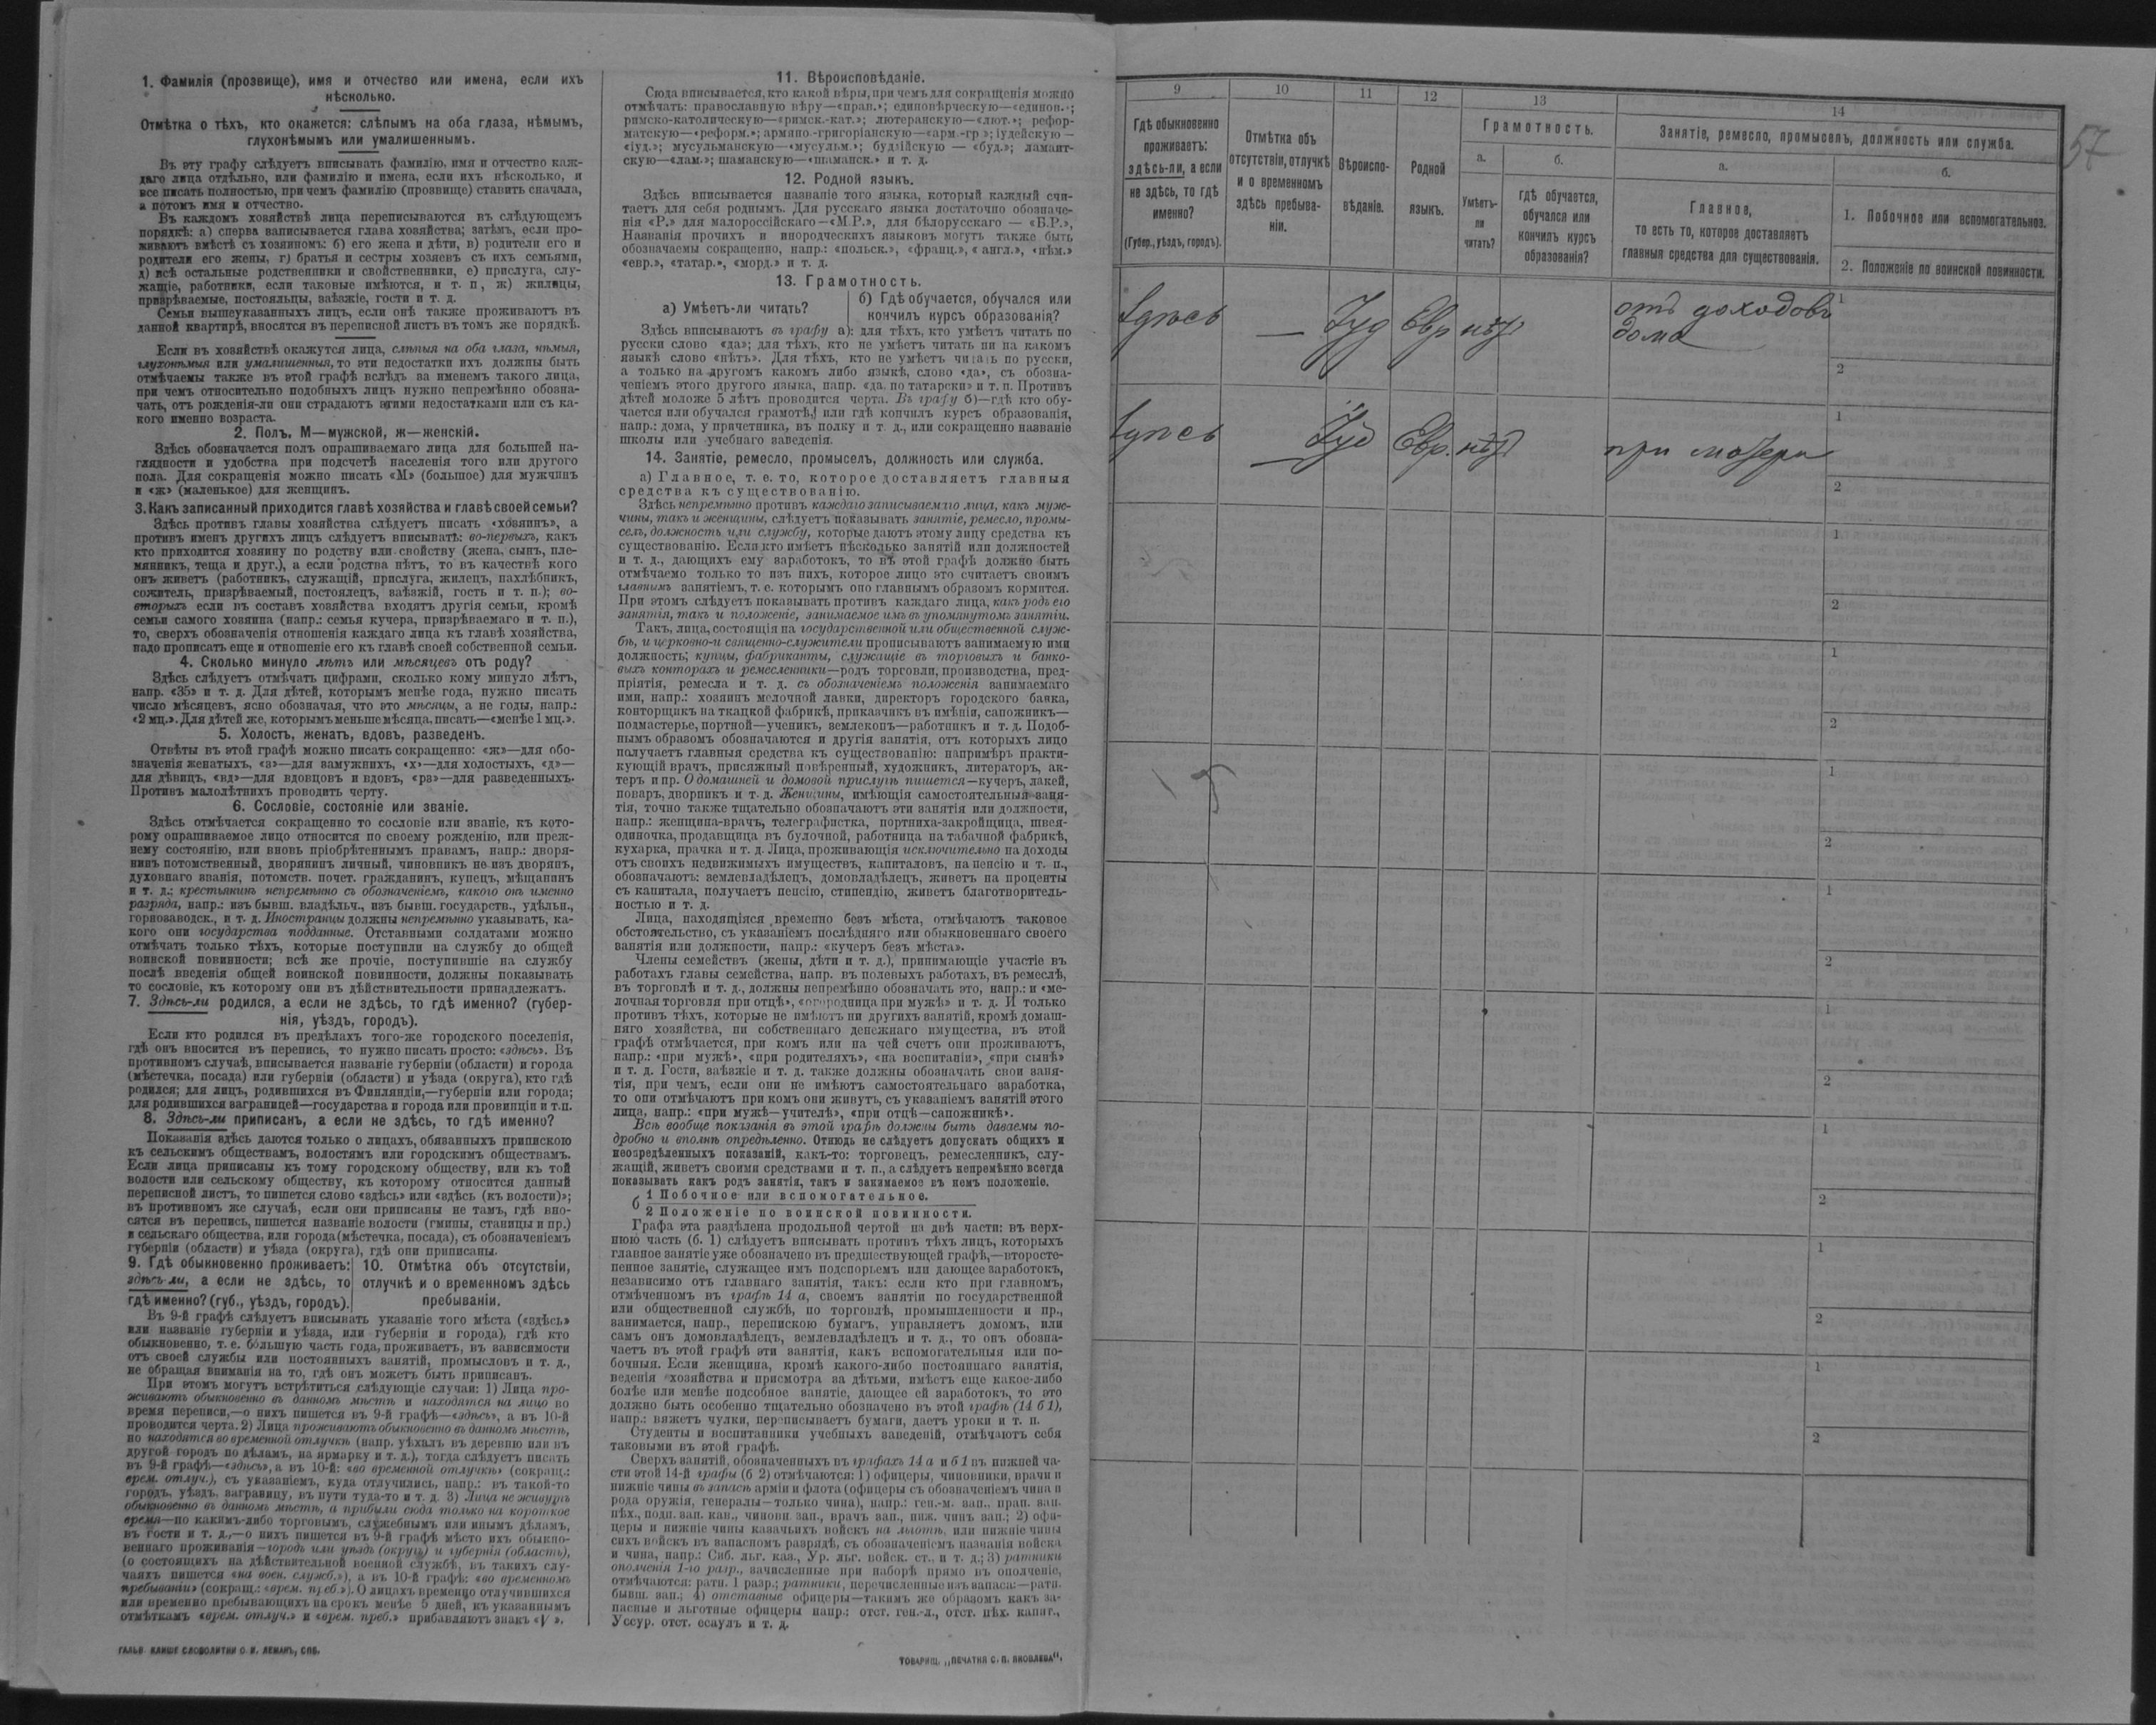 1. Фамилія (прозвище), имя и отчество или имена, если ихъ
нѣсколько.
Отмѣтка о тѣхъ, кто окажется: слѣпымъ на оба глаза, нѣмымъ,
глухонѣмымъ или умалишеннымъ.
Въ эту графу слѣдуетъ вписывать фамилію, имя и отчество каж-
даго лица отдѣльно, или фамилію и имена, если ихъ нѣсколько, и
все писать полностью, при чемъ фамилію (прозвище) ставить сначала,
а потомъ имя и отчество.
Въ каждомъ хозяйствѣ лица переписываются въ слѣдующемъ
порядкѣ: а) сперва записывается глава хозяйства; затѣмъ, если про-
живаютъ вмѣстѣ съ хозяиномъ: б) его жена и дѣти, в) родители его и
родители его жены, г) братья и сестры хозяевъ съ ихъ семьями,
д) всѣ остальные родственники и свойственники, е) прислуга, слу-
жащіе, работники, если таковые имѣются, и т. п, ж) жильцы,
призрѣваемые, постояльцы, заѣзжіе, гости и т. д.
Семьи вышеуказанныхъ лицъ, если онѣ также проживаютъ въ
данной квартирѣ, вносятся въ переписной листъ въ томъ же порядкѣ.
Если въ хозяйствѣ окажутся лица, слѣпыя на оба глаза, нѣмыя,
глухонѣмыя или умалишенныя, то эти недостатки ихъ должны быть
отмѣчаемы также въ этой графѣ вслѣдъ за именемъ такого лица,
при чемъ относительно подобныхъ лицъ нужно непремѣнно обозна-
чать, отъ рожденія-ли они страдаютъ этими недостатками или съ ка-
кого именно возраста.
2. Полъ. М—мужской, ж—женскій.
Здѣсь обозначается полъ опрашиваемаго лица для большей на-
глядности и удобства при подсчетѣ населенія того или другого
пола. Для сокращенія можно писать «М» (большое) для мужчинъ
и «ж» (маленькое) для женщинъ.
3. Какъ записанный приходится главѣ хозяйства и главѣ своей семьи?
Здѣсь противъ главы хозяйства слѣдуетъ писать «хозяинъ», а
противъ именъ другихъ лицъ слѣдуетъ вписывать: во-первыхъ, какъ
кто приходится хозяину по родству или свойству (жена, сынъ, пле-
мянникъ, теща и друг.), а если родства нѣтъ, то въ качествѣ кого
онъ живетъ (работникъ, служащій, прислуга, жилецъ, нахлѣбникъ,
сожитель, призрѣваемый, постоялецъ, заѣзжій, гость и т. п.); во-
вторыхъ если въ составъ хозяйства входятъ другія семьи, кромѣ
семьи самого хозяина (напр.: семья кучера, призрѣваемаго и т. п.),
то, сверхъ обозначенія отношенія каждаго лица къ главѣ хозяйства,
надо прописать еще и отношеніе его къ главѣ своей собственной семьи.
4. Сколько минуло лѣтъ или мѣсяцевъ отъ роду?
Здѣсь слѣдуетъ отмѣчать цифрами, сколько кому минуло лѣтъ,
напр. «35» и т. д. Для дѣтей, которымъ менѣе года, нужно писать
число мѣсяцевъ, ясно обозначая, что это мѣсяцы, а не годы, напр.:
«2 мц.». Для дѣтей же, которымъ меньше мѣсяца, писать—«менѣе 1 мц.».
5. Холостъ, женатъ, вдовъ, разведенъ.
Отвѣты въ этой графѣ можно писать сокращенно: «ж»—для обо-
значенія женатыхъ, «з»—для замужнихъ, «х»—для холостыхъ, «д»—
для дѣвицъ, «вд»—для вдовцовъ и вдовъ, «рз»—для разведенныхъ.
Противъ малолѣтнихъ проводить черту.
6. Сословіе, состояніе или званіе.
Здѣсь отмѣчается сокращенно то сословіе или званіе, къ кото-
рому опрашиваемое лицо относится по своему рожденію, или преж-
нему состоянію, или вновь пріобрѣтеннымъ правамъ, напр.: дворя-
нинъ потомственный, дворянинъ личный, чиновникъ не изъ дворянъ,
духовнаго званія, потомств. почет. гражданинъ, купецъ, мѣщанинъ
и т. д.; крестьянинъ непремѣнно съ обозначеніемъ, какого онъ именно
разряда, напр.: изъ бывш. владѣльч., изъ бывш. государств., удѣльн.,
горнозаводск., и т. д. Иностранцы должны непремѣнно указывать, ка-
кого они государства подданные. Отставными солдатами можно
отмѣчать только тѣхъ, которые поступили на службу до общей
воинской повинности; всѣ же прочіе, поступившіе на службу
послѣ введенія общей воинской повинности, должны показывать
то сословіе, къ которому они въ дѣйствительности принадлежатъ.
7. Здѣсь-ли родился, а если не здѣсь, то гдѣ именно? (губер-
нія, уѣздъ, городъ).
Если кто родился въ предѣлахъ того-же городского поселенія,
гдѣ онъ вносится въ перепись, то нужно писать просто: «здѣсь». Въ
противномъ случаѣ, вписывается названіе губерніи (области) и города
(мѣстечка, посада) или губерніи (области) и уѣзда (округа), кто гдѣ
родился; для лицъ, родившихся въ Финляндіи,—губерніи или города;
для родившихся заграницей—государства и города или провинціи и т.п.
8. Здѣсь-ли приписанъ, а если не здѣсь, то гдѣ именно?
Показанія здѣсь даются только о лицахъ, обязанныхъ припискою
къ сельскимъ обществамъ, волостямъ или городскимъ обществамъ.
Если лица приписаны къ тому городскому обществу, или къ той
волости или сельскому обществу, къ которому относится данный
переписной листъ, то пишется слово «здѣсь» или «здѣсь (къ волости)»;
въ противномъ же случаѣ, если они приписаны не тамъ, гдѣ вно-
сятся въ перепись, пишется названіе волости (гмины, станицы и пр.)
и сельскаго общества, или города (мѣстечка, посада), съ обозначеніемъ
губерніи (области) и уѣзда (округа), гдѣ они приписаны.
9. Гдѣ обыкновенно проживаетъ:
здѣсь-ли, а если не здѣсь, то
гдѣ именно? (губ., уѣздъ, городъ).
10. Отмѣтка объ отсутствіи,
отлучкѣ и о временномъ здѣсь
пребываніи.
Въ 9-й графѣ слѣдуетъ вписывать указаніе того мѣста («здѣсь»
или названіе губерніи и уѣзда, или губерніи и города), гдѣ кто
обыкновенно, т. е. большую часть года, проживаетъ, въ зависимости
отъ своей службы или постоянныхъ занятій, промысловъ и т. д.,
не обращая вниманія на то, гдѣ онъ можетъ быть приписанъ.
При этомъ могутъ встрѣтиться слѣдующіе случаи: 1) Лица про-
живаютъ обыкновенно въ данномъ мѣстѣ и находятся на лицо во
время переписи,—о нихъ пишется въ 9-й графѣ—«здѣсь», а въ 10-й
проводится черта. 2) Лица проживаютъ обыкновенно въ данномъ мѣстѣ,
но находятся во временной отлучкѣ (напр. уѣхалъ въ деревню или въ
другой городъ по дѣламъ, на ярмарку и т. д.), тогда слѣдуетъ писать
въ 9-й графѣ—«здѣсь», а въ 10-й: «во временной отлучкѣ» (сокращ.:
врем. отлуч.), съ указаніемъ, куда отлучились, напр.: въ такой-то
городъ, уѣздъ, заграницу, въ пути туда-то и т. д. 3) Лица не живутъ
обыкновенно въ данномъ мѣстѣ, а прибыли сюда только на короткое
время—по какимъ-либо торговымъ, служебнымъ или инымъ дѣламъ,
въ гости и т. д.,—о нихъ пишется въ 9-й графѣ мѣсто ихъ обыкно-
веннаго проживанія—городъ или уѣздъ (округъ) и губернія (область),
(о состоящихъ на дѣйствительной военной службѣ, въ такихъ слу-
чаяхъ пишется «на воен. служб.»), а въ 10-й графѣ: «во временномъ
пребываніи» (сокращ.: «врем. преб.»). О лицахъ временно отлучившихся
или временно пребывающихъ на срокъ менѣе 5 дней, къ указаннымъ
отмѣткамъ «врем. отлуч.» и «врем. преб.» прибавляютъ знакъ «V».
ГАЛЬВ. КЛИШЕ СЛОВОЛИТНИ О. И. ЛЕМАНЪ, СПБ.
11. Вѣроисповѣданіе.
Сюда вписывается, кто какой вѣры, при чемъ для сокращенія можно
отмѣчать: православную вѣру—«прав.»; единовѣрческую—«единов.»;
римско-католическую—«римск.-кат.»; лютеранскую—«лют.»; рефор-
матскую—«реформ.»; армяно-григоріанскую—«арм.-гр»; іудейскую—
«іуд.»; мусульманскую—«мусульм.»; буддійскую — «буд.»; ламаит-
скую—«лам.»; шаманскую—«шаманск.» и т. д.
12. Родной языкъ.
Здѣсь вписывается названіе того языка, который каждый счи-
таетъ для себя роднымъ. Для русскаго языка достаточно обозначе-
нія «Р.» для малороссійскаго—«М.Р.», для бѣлорусскаго — «Б.Р.»,
Названія прочихъ и инородческихъ языковъ могутъ также быть
обозначаемы сокращенно, напр.: «польск.», «франц.», «англ.», «нѣм.»
«евр.», «татар.», «морд.» и т. д.
13. Грамотность.
а) Умѣетъ-ли читать?
б) Гдѣ обучается, обучался или
кончилъ курсъ образованія?
Здѣсь вписываютъ въ графу а): для тѣхъ, кто умѣетъ читать по
русски слово «да»; для тѣхъ, кто не умѣетъ читать ни на какомъ
языкѣ слово «нѣтъ». Для тѣхъ, кто не умѣетъ читать по русски,
а только на другомъ какомъ либо языкѣ, слово «да», съ обозна-
ченіемъ этого другого языка, напр. «да, по татарски» и т. п. Противъ
дѣтей моложе 5 лѣтъ проводится черта. Въ графу б)—гдѣ кто обу-
чается или обучался грамотѣ, или гдѣ кончилъ курсъ образованія,
напр.: дома, у причетника, въ полку и т. д., или сокращенно названіе
школы или учебнаго заведенія.
14. Занятіе, ремесло, промыселъ, должность или служба.
а) Главное, т. е. то, которое доставляетъ главныя
средства къ существованію.
Здѣсь непремѣнно противъ каждаго записываемаго лица, какъ муж-
чины, такъ и женщины, слѣдуетъ показывать занятіе, ремесло, промы-
селъ, должность или службу, которые даютъ этому лицу средства къ
существованію. Если кто имѣетъ нѣсколько занятій или должностей
и т. д., дающихъ ему заработокъ, то въ этой графѣ должно быть
отмѣчаемо только то изъ нихъ, которое лицо это считаетъ своимъ
главнымъ занятіемъ, т. е. которымъ оно главнымъ образомъ кормится.
При этомъ слѣдуетъ показывать противъ каждаго лица, какъ родъ его
занятія, такъ и положеніе, занимаемое имъ въ упомянутомъ занятіи.
Такъ, лица, состоящія на государственной или общественной служ-
бѣ, и церковно-и священно-служители прописываютъ занимаемую ими
должность; купцы, фабриканты, служащіе въ торговыхъ и банко-
выхъ конторахъ и ремесленники—родъ торговли, производства, пред-
пріятія, ремесла и т. д. съ обозначеніемъ положенія занимаемаго
ими, напр.: хозяинъ мелочной лавки, директоръ городского банка,
конторщикъ на ткацкой фабрикѣ, приказчикъ въ имѣніи, сапожникъ—
подмастерье, портной—ученикъ, землекопъ—работникъ и т. д. Подоб-
нымъ образомъ обозначаются и другія занятія, отъ которыхъ лицо
получаетъ главныя средства къ существованію: напримѣръ практи-
кующій врачъ, присяжный повѣренный, художникъ, литераторъ, ак-
теръ и пр. О домашней и домовой прислугѣ пишется—кучеръ, лакей,
поваръ, дворникъ и т. д. Женщины, имѣющія самостоятельныя заня-
тія, точно также тщательно обозначаютъ эти занятія или должности,
напр.: женщина-врачъ, телеграфистка, портниха-закройщица, швея-
одиночка, продавщица въ булочной, работница на табачной фабрикѣ,
кухарка, прачка и т. д. Лица, проживающія исключительно на доходы
отъ своихъ недвижимыхъ имуществъ, капиталовъ, на пенсію и т. п.,
обозначаютъ: землевладѣлецъ, домовладѣлецъ, живетъ на проценты
съ капитала, получаетъ пенсію, стипендію, живетъ благотворитель-
ностью и т. д.
Лица, находящіяся временно безъ мѣста, отмѣчаютъ таковое
обстоятельство, съ указаніемъ послѣдняго или обыкновеннаго своего
занятія или должности, напр.: «кучеръ безъ мѣста».
Члены семействъ (жены, дѣти и т. д.), принимающіе участіе въ
работахъ главы семейства, напр. въ полевыхъ работахъ, въ ремеслѣ,
въ торговлѣ и т. д., должны непремѣнно обозначать это, напр.: и «ме-
лочная торговля при отцѣ», «огородница при мужѣ» и т. д. И только
противъ тѣхъ, которые не имѣютъ ни другихъ занятій, кромѣ домаш-
няго хозяйства, ни собственнаго денежнаго имущества, въ этой
графѣ отмѣчается, при комъ или на чей счетъ они проживаютъ,
напр.: «при мужѣ», «при родителяхъ», «на воспитаніи», «при сынѣ»
и т. д. Гости, заѣзжіе и т. д. также должны обозначать свои заня-
тія, при чемъ, если они не имѣютъ самостоятельнаго заработка,
то они отмѣчаютъ при комъ они живутъ, съ указаніемъ занятій этого
лица, напр.: «при мужѣ—учителѣ», «при отцѣ—сапожникѣ».
Всѣ вообще показанія въ этой графѣ должны быть даваемы по-
дробно и вполнѣ опредѣленно. Отнюдь не слѣдуетъ допускать общихъ и
неопредѣленныхъ показаній, какъ-то: торговецъ, ремесленникъ, слу-
жащій, живетъ своими средствами и т. п., а слѣдуетъ непремѣнно всегда
показывать какъ родъ занятія, такъ и занимаемое въ немъ положеніе.
б 1 Побочное или вспомогательное.
2 Положеніе по воинской повинности.
Графа эта раздѣлена продольной чертой на двѣ части: въ верх-
нюю часть (б. 1) слѣдуетъ вписывать противъ тѣхъ лицъ, которыхъ
главное занятіе уже обозначено въ предшествующей графѣ,—второсте-
пенное занятіе, служащее имъ подспорьемъ или дающее заработокъ,
независимо отъ главнаго занятія, такъ: если кто при главномъ,
отмѣченномъ въ графѣ 14 а, своемъ занятіи по государственной
или общественной службѣ, по торговлѣ, промышленности и пр.,
занимается, напр., перепискою бумагъ, управляетъ домомъ, или
самъ онъ домовладѣлецъ, землевладѣлецъ и т. д., то онъ обозна-
чаетъ въ этой графѣ эти занятія, какъ вспомогательныя или по-
бочныя. Если женщина, кромѣ какого-либо постояннаго занятія,
веденія хозяйства и присмотра за дѣтьми, имѣетъ еще какое-либо
болѣе или менѣе подсобное занятіе, дающее ей заработокъ, то это
должно быть особенно тщательно обозначено въ этой графѣ (14 б 1),
напр.: вяжетъ чулки, переписываетъ бумаги, даетъ уроки и т. п.
Студенты и воспитанники учебныхъ заведеній, отмѣчаютъ себя
таковыми въ этой графѣ.
Сверхъ занятій, обозначенныхъ въ графахъ 14 а и б 1 въ нижней ча-
сти этой 14-й графы (б 2) отмѣчаются: 1) офицеры, чиновники, врачи и
нижніе чины въ запасѣ арміи и флота (офицеры съ обозначеніемъ чина и
рода оружія, генералы—только чина), напр.: ген.-м. зап., прап. зап.
пѣх., подп. зап. кав., чиновн. зап., врачъ зап., ниж. чинъ зап.; 2) офи-
церы и нижніе чины казачьихъ войскъ на льготѣ, или нижніе чины
сихъ войскъ въ запасномъ разрядѣ, съ обозначеніемъ названія войска
и чина, напр.: Сиб. льг. каз., Ур. льг. войск. ст., и т. д.; 3) ратники
ополченія 1-го разр., зачисленные при наборѣ прямо въ ополченіе,
отмѣчаются: ратн. 1 разр.; ратники, перечисленные изъ запаса:—ратн.
бывш. зап.; 4) отставные офицеры—такимъ же образомъ какъ за-
пасные и льготные офицеры напр.: отст. ген.-л., отст. пѣх. капит.,
Уссур. отст. есаулъ и т. д.
ТОВАРИЩ. „ПЕЧАТНЯ С. П. ЯКОВЛЕВА".
57
9 10 11 12 13 14
Гдѣ обыкновенно
проживаетъ:
здѣсь-ли, а если
не здѣсь, то гдѣ
именно?
(Губер., уѣздъ, городъ).
Отмѣтка объ
отсутствіи, отлучкѣ
и о временномъ
здѣсь пребыва-
ніи.
Вѣроиспо-
вѣданіе.
Родной
языкъ.
Грамотность.
а.
Умѣетъ-
ли
читать?
б.
гдѣ обучается,
обучался или
кончилъ курсъ
образованія?
Занятіе, ремесло, промыселъ, должность или служба.
а.
Главное,
то есть то, которое доставляетъ
главныя средства для существованія.
б.
1. Побочное или вспомогательное.
2. Положеніе по воинской повинности.
здѣсь — Іуд Евр нѣтъ отъ доходовъ 1
дома
2
здѣсь — Іуд Евр. нѣтъ при матери 1
2
1
2
1
2
1
2
1
2
1
2
1
2
1
2
1
2